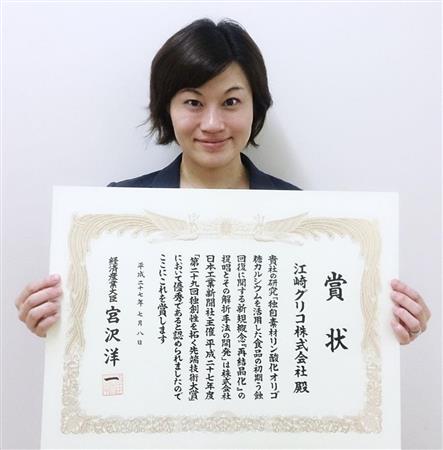 賞状
江崎グリコ株式会社 殿
貴社の研究「独自素材リン酸化オリゴ
糖カルシウムを活用した食品の初期う蝕
回復に関する新規概念『再結晶化』の
提唱とその解析手法の開発」は株式会社
日本工業新聞社主催 平成二十七年度
「第二十九回独創性を拓く先端技術大賞」
において優秀であると認められましたので
ここにこれを賞します
平成二十七年 七月 八日
経済産業大臣 宮沢洋一